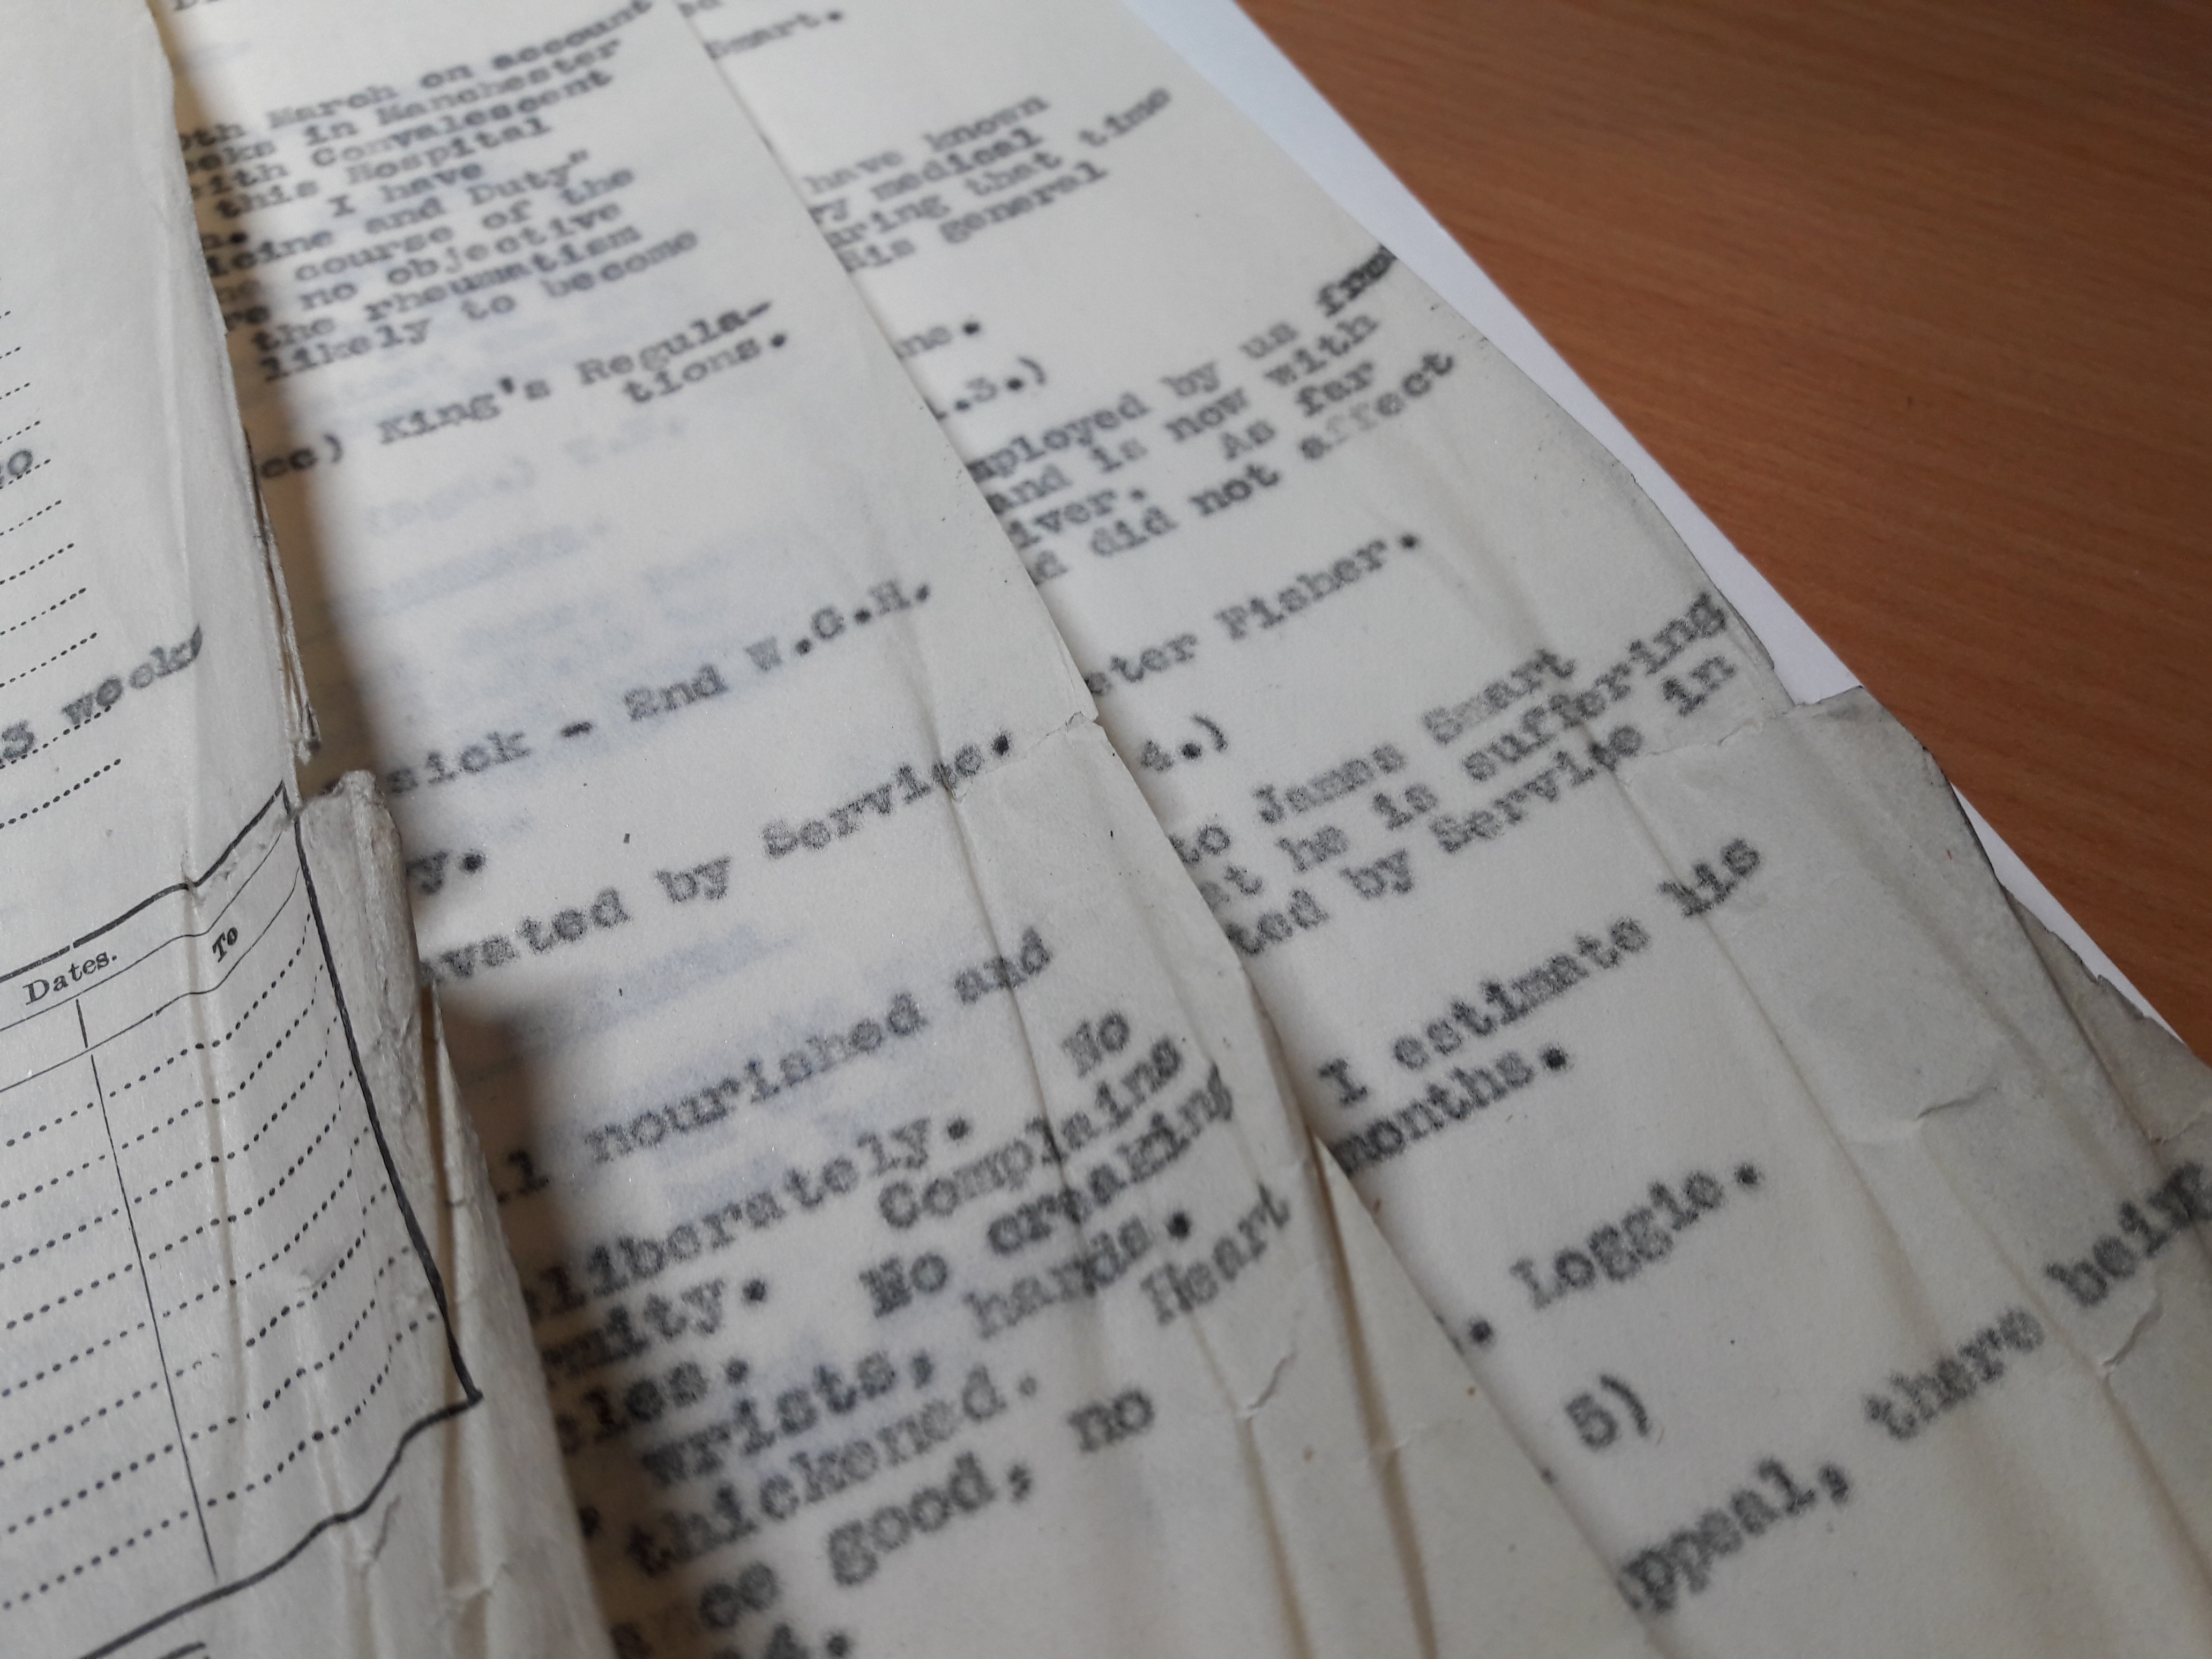 weeks
Dates.
To
March on account
in Manchester
Convalescent
this Hospital
I have
and Duty"
course of the
no objective
the rheumatism
likely to become
King's Regula-
tions.
sick - 2nd W.G.H.
y.
vated by Service.
nourished and
liberately. No
mity. Complains
No creaking
wrists, hands.
thickened. Heart
good, no
Smart.
have known
medical
uring that time
his general
.3.)
mployed by us from
and is now with
iver. As far
did not affect
ster Fisher.
4.)
to James Smart
at he is suffering
ted by Service in
I estimate his
months.
. Loggie.
5)
ppeal, there being